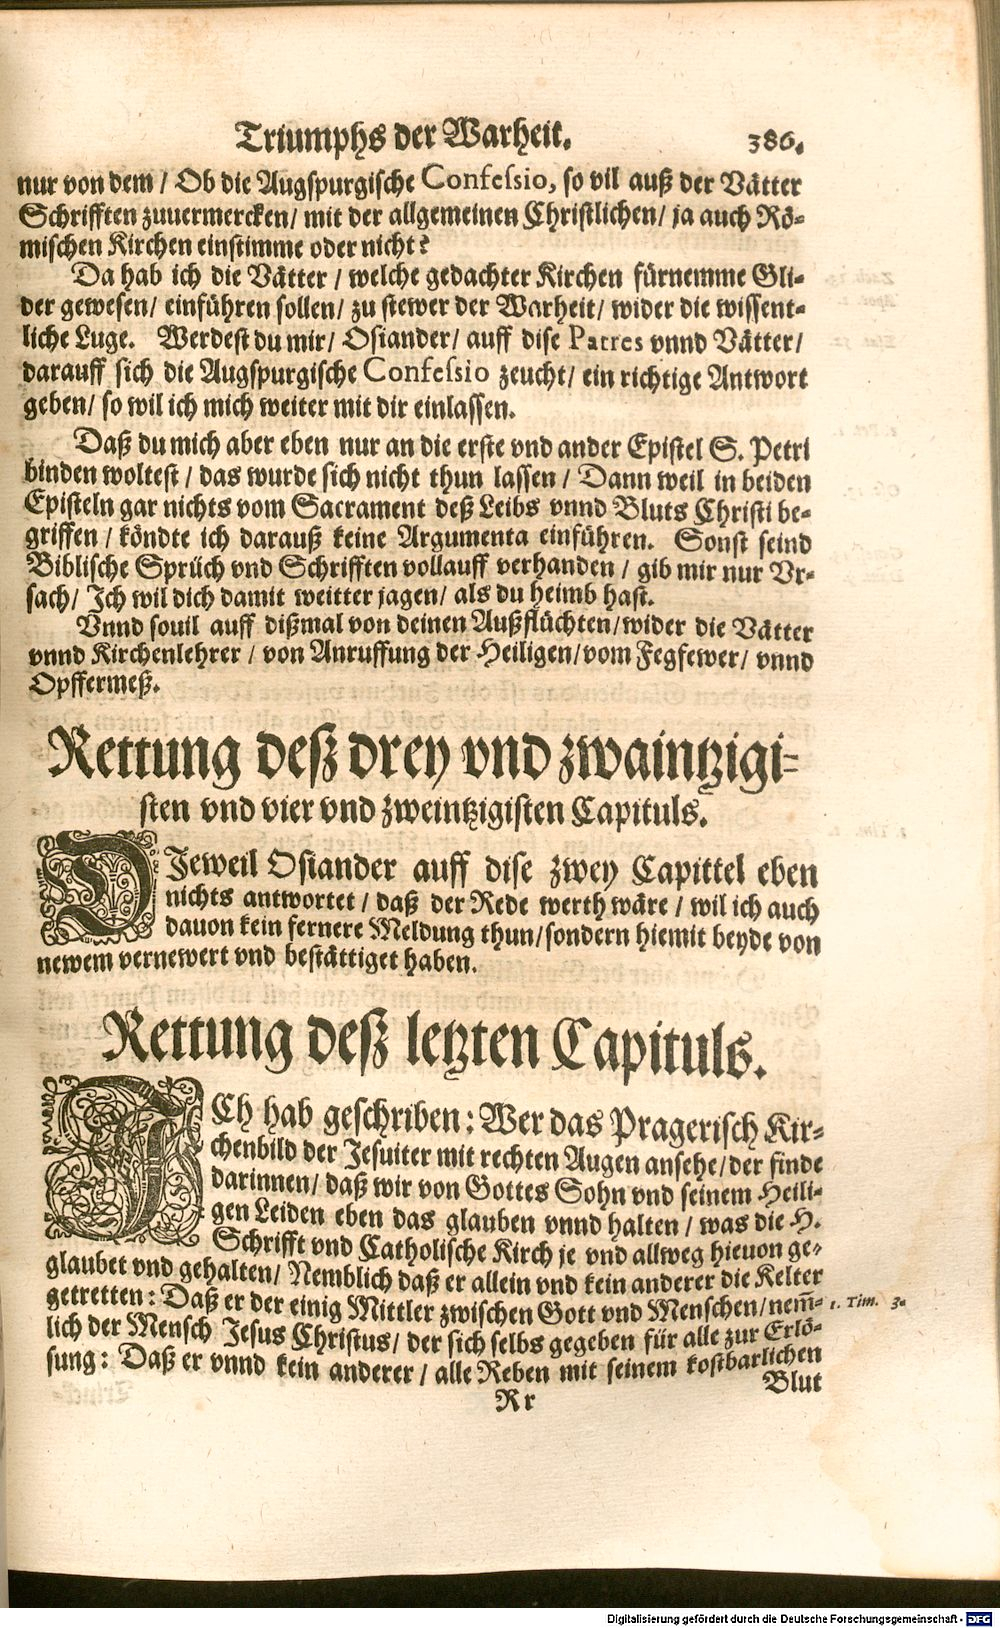 Triumphs der Warheit. 386.
nur von dem / Ob die Augspurgische Confessio, so vil auß der Vätter
Schrifften zuuermercken / mit der allgemeinen Christlichen / ja auch Rö-
mischen Kirchen einstimme oder nicht?
Da hab ich die Vätter / welche gedachter Kirchen fürnemme Gli-
der gewesen / einführen sollen / zu stewer der Warheit / wider die wissent-
liche Luge. Werdest du mir / Osiander / auff dise Patres vnnd Vätter /
darauff sich die Augspurgische Confessio zeucht / ein richtige Antwort
geben / so wil ich mich weiter mit dir einlassen.
Daß du mich aber eben nur an die erste vnd ander Epistel S. Petri
binden woltest / das wurde sich nicht thun lassen / Dann weil in beiden
Episteln gar nichts vom Sacrament deß Leibs vnnd Bluts Christi be-
griffen / köndte ich darauß keine Argumenta einführen. Sonst seind
Biblische Sprüch vnd Schrifften vollauff verhanden / gib mir nur Vr-
sach / Ich wil dich damit weitter jagen / als du heimb hast.
Vnnd souil auff dißmal von deinen Außflüchten / wider die Vätter
vnnd Kirchenlehrer / von Anruffung der Heiligen / vom Fegfewer / vnnd
Opffermeß.
Rettung deß drey vnd zwaintzigi-
sten vnd vier vnd zweintzigisten Capituls.
DJeweil Osiander auff dise zwey Capittel eben
nichts antwortet / daß der Rede werth wäre / wil ich auch
dauon kein fernere Meldung thun / sondern hiemit beyde von
newem vernewert vnd bestättiget haben.
Rettung deß letzten Capituls.
ICh hab geschriben: Wer das Pragerisch Kir-
chenbild der Jesuiter mit rechten Augen ansehe / der finde
darinnen / daß wir von Gottes Sohn vnd seinem Heili-
gen Leiden eben das glauben vnnd halten / was die H.
Schrifft vnd Catholische Kirch je vnd allweg hieuon ge-
glaubet vnd gehalten / Nemblich daß er allein vnd kein anderer die Kelter
getretten: Daß er der einig Mittler zwischen Gott vnd Menschen / nem̄- 1. Tim. 3.
lich der Mensch Jesus Christus / der sich selbs gegeben für alle zur Erlö-
sung: Daß er vnnd kein anderer / alle Reben mit seinem kostbarlichen
Blut
Rr
Digitalisierung gefördert durch die Deutsche Forschungsgemeinschaft - DFG